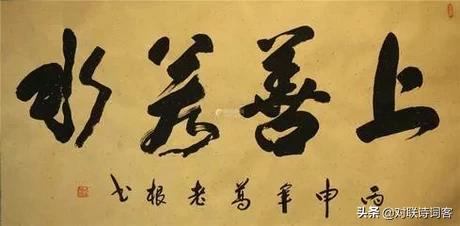 上善若水
丙申年老根书
头条 @对联诗词客